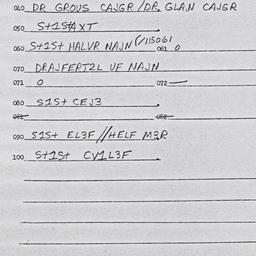 040 DR GROUS CAJGR/DR. GLAN CAJGR
050 S+1S+AXT
060 S+1S+ HALVR NAJN (/115061 061 0
070 DRAJFERT2L UF NAJN
071 0 072 —
080 S1S+ CEJ3
081 082
090 S1S+ EL3F//HELF M3R
100 S+1S+ CV1L3F